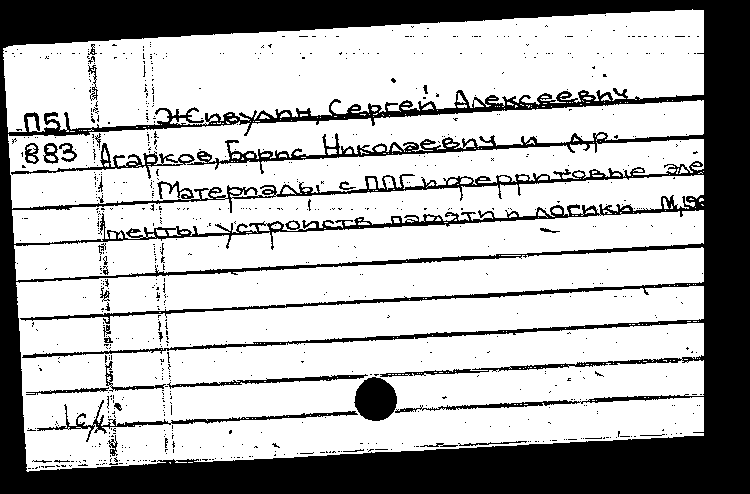 П51 Живулин, Сергей Алексеевич.
883 Агарков, Борис Николаевич и др.
Материалы с ППГ и ферритовые эле
менты устройств памяти и логики М, 196